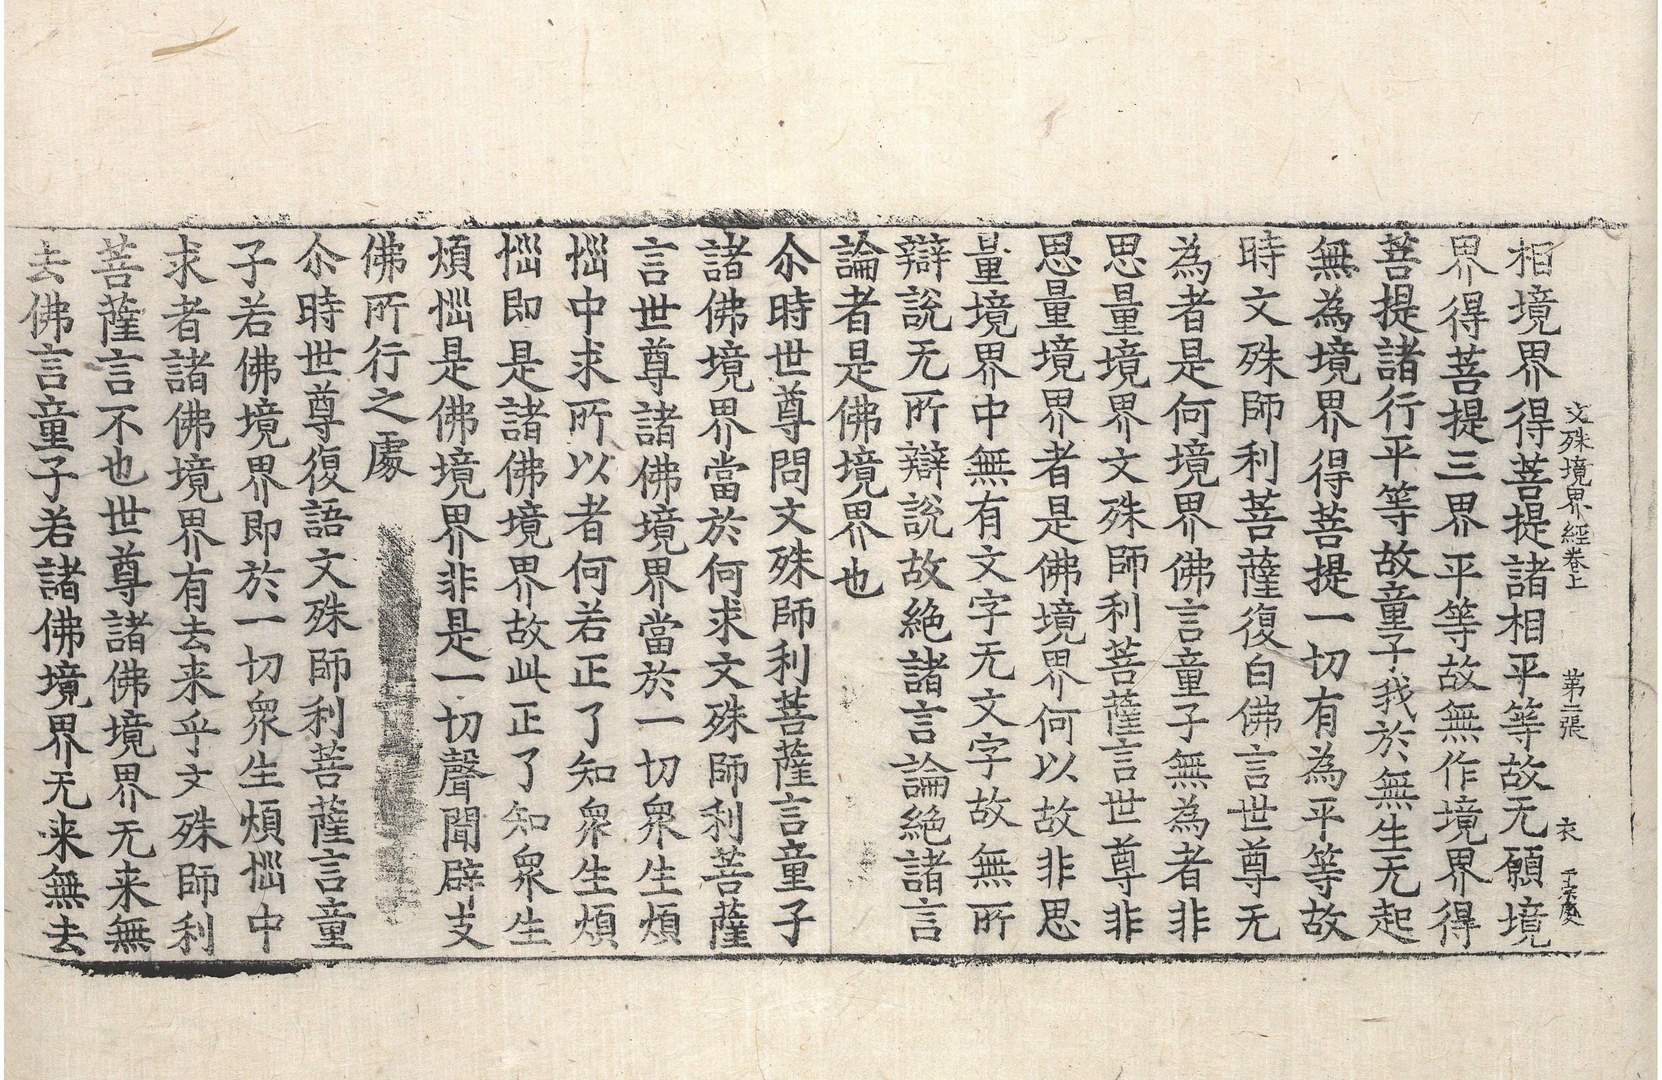 文殊境界經卷上 第二張 衣
相境界得菩提諸相平等故无願境
界得菩提三界平等故無作境界得
菩提諸行平等故童子我於無生无起
無為境界得菩提一切有為平等故
時文殊師利菩薩復白佛言世尊无
為者是何境界佛言童子無為者非
思量境界文殊師利菩薩言世尊非
思量境界者是佛境界何以故非思
量境界中無有文字无文字故無所
辯說无所辯說故絶諸言論絶諸言
論者是佛境界也
尒時世尊問文殊師利菩薩言童子
諸佛境界當於何求文殊師利菩薩
言世尊諸佛境界當於一切衆生煩
惱中求所以者何若正了知衆生煩
惱即是諸佛境界故此正了知衆生
煩惱是佛境界非是一切聲聞辟支
佛所行之處
尒時世尊復語文殊師利菩薩言童
子若佛境界即於一切衆生煩惱中
求者諸佛境界有去来乎文殊師利
菩薩言不也世尊諸佛境界无来無
去佛言童子若諸佛境界无来無去